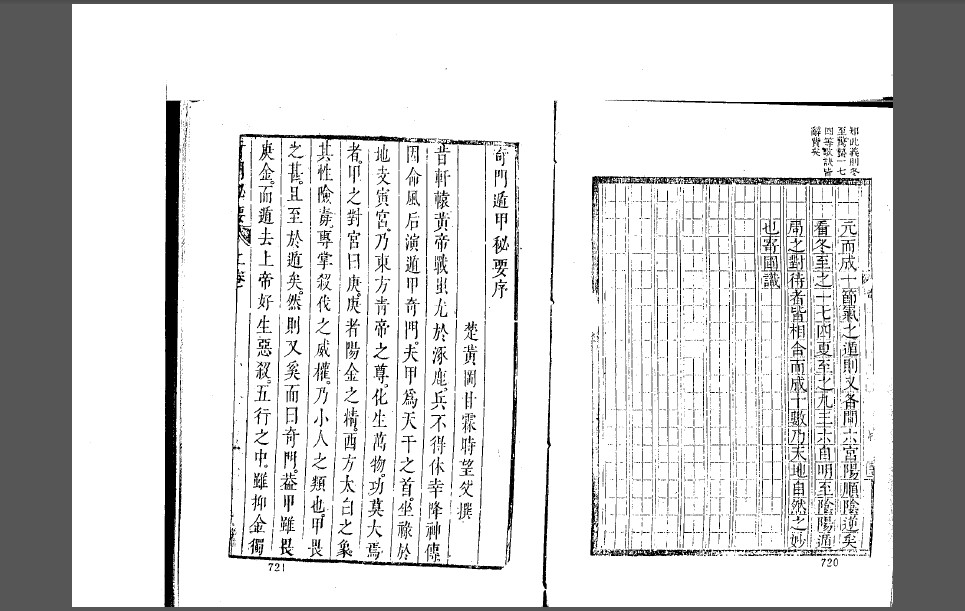 如此義則冬
至驚蟄一七
四等歌訣皆
辭費矣
元而成一節氣之遁則又各間六宮陽順陰逆矣
看冬至之一七四夏至之九三六自明至陰陽遁
局之對待者皆相合而成十數乃天地自然之妙
也寄圖識
720
奇門遁甲秘要序
楚黃岡甘霖時望父撰
昔軒轅黃帝戰蚩尤於涿鹿。兵不得休幸降神傳
因命風后演遁甲奇門。夫甲為天干之首。坐祿於
地支寅宮。乃東方青帝之尊。化生萬物。功莫大焉
者。甲之對宮曰庚。庚者陽金之精。西方太白之象
其性險毒。專掌殺伐之威權。乃小人之類也。甲畏
之甚。且至於遁矣。然則又奚而曰奇門。葢甲雖畏
庚金。而遁去上帝好生惡殺。五行之中。雖抑金獨
奇門秘要 上卷
721